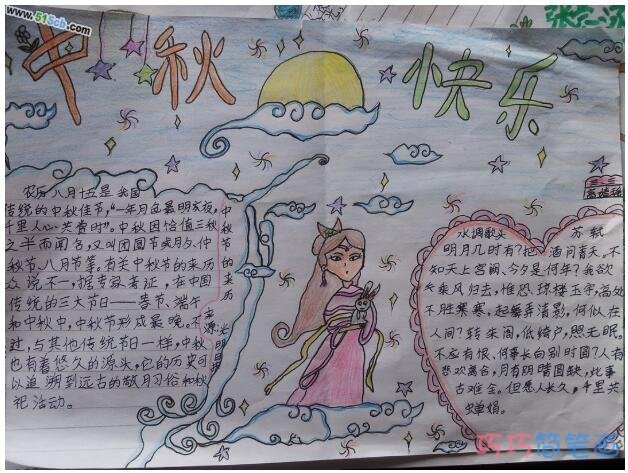 www.51Scb.com
中秋快乐
农历八月十五是我国
传统的中秋佳节，“一年月色最明夜，
千里人心共赏时”。中秋因恰值三秋
之半而闻名，又叫团圆节或月夕、仲
秋节、八月节等，有关中秋节的来历
众说不一，据专家考证，在中国
传统的三大节日——春节、端午
和中秋中，中秋节形成最晚，不
过，与其他传统节日一样，中秋
也有着悠久的源头，它的历史可
以追溯到远古的敬月习俗和秋
祀活动。
中秋节的来历
来源：光明日报
水调歌头 苏轼
明月几时有？把酒问青天。不
知天上宫阙，今夕是何年？我欲
乘风归去，惟恐琼楼玉宇，高处
不胜寒寒，起舞弄清影，何似在
人间？转朱阁，低绮户，照无眠。
不应有恨，何事长向别时圆？人有
悲欢离合，月有阴晴圆缺，此事
古难全。但愿人长久，千里共
婵娟。
巧巧简笔画